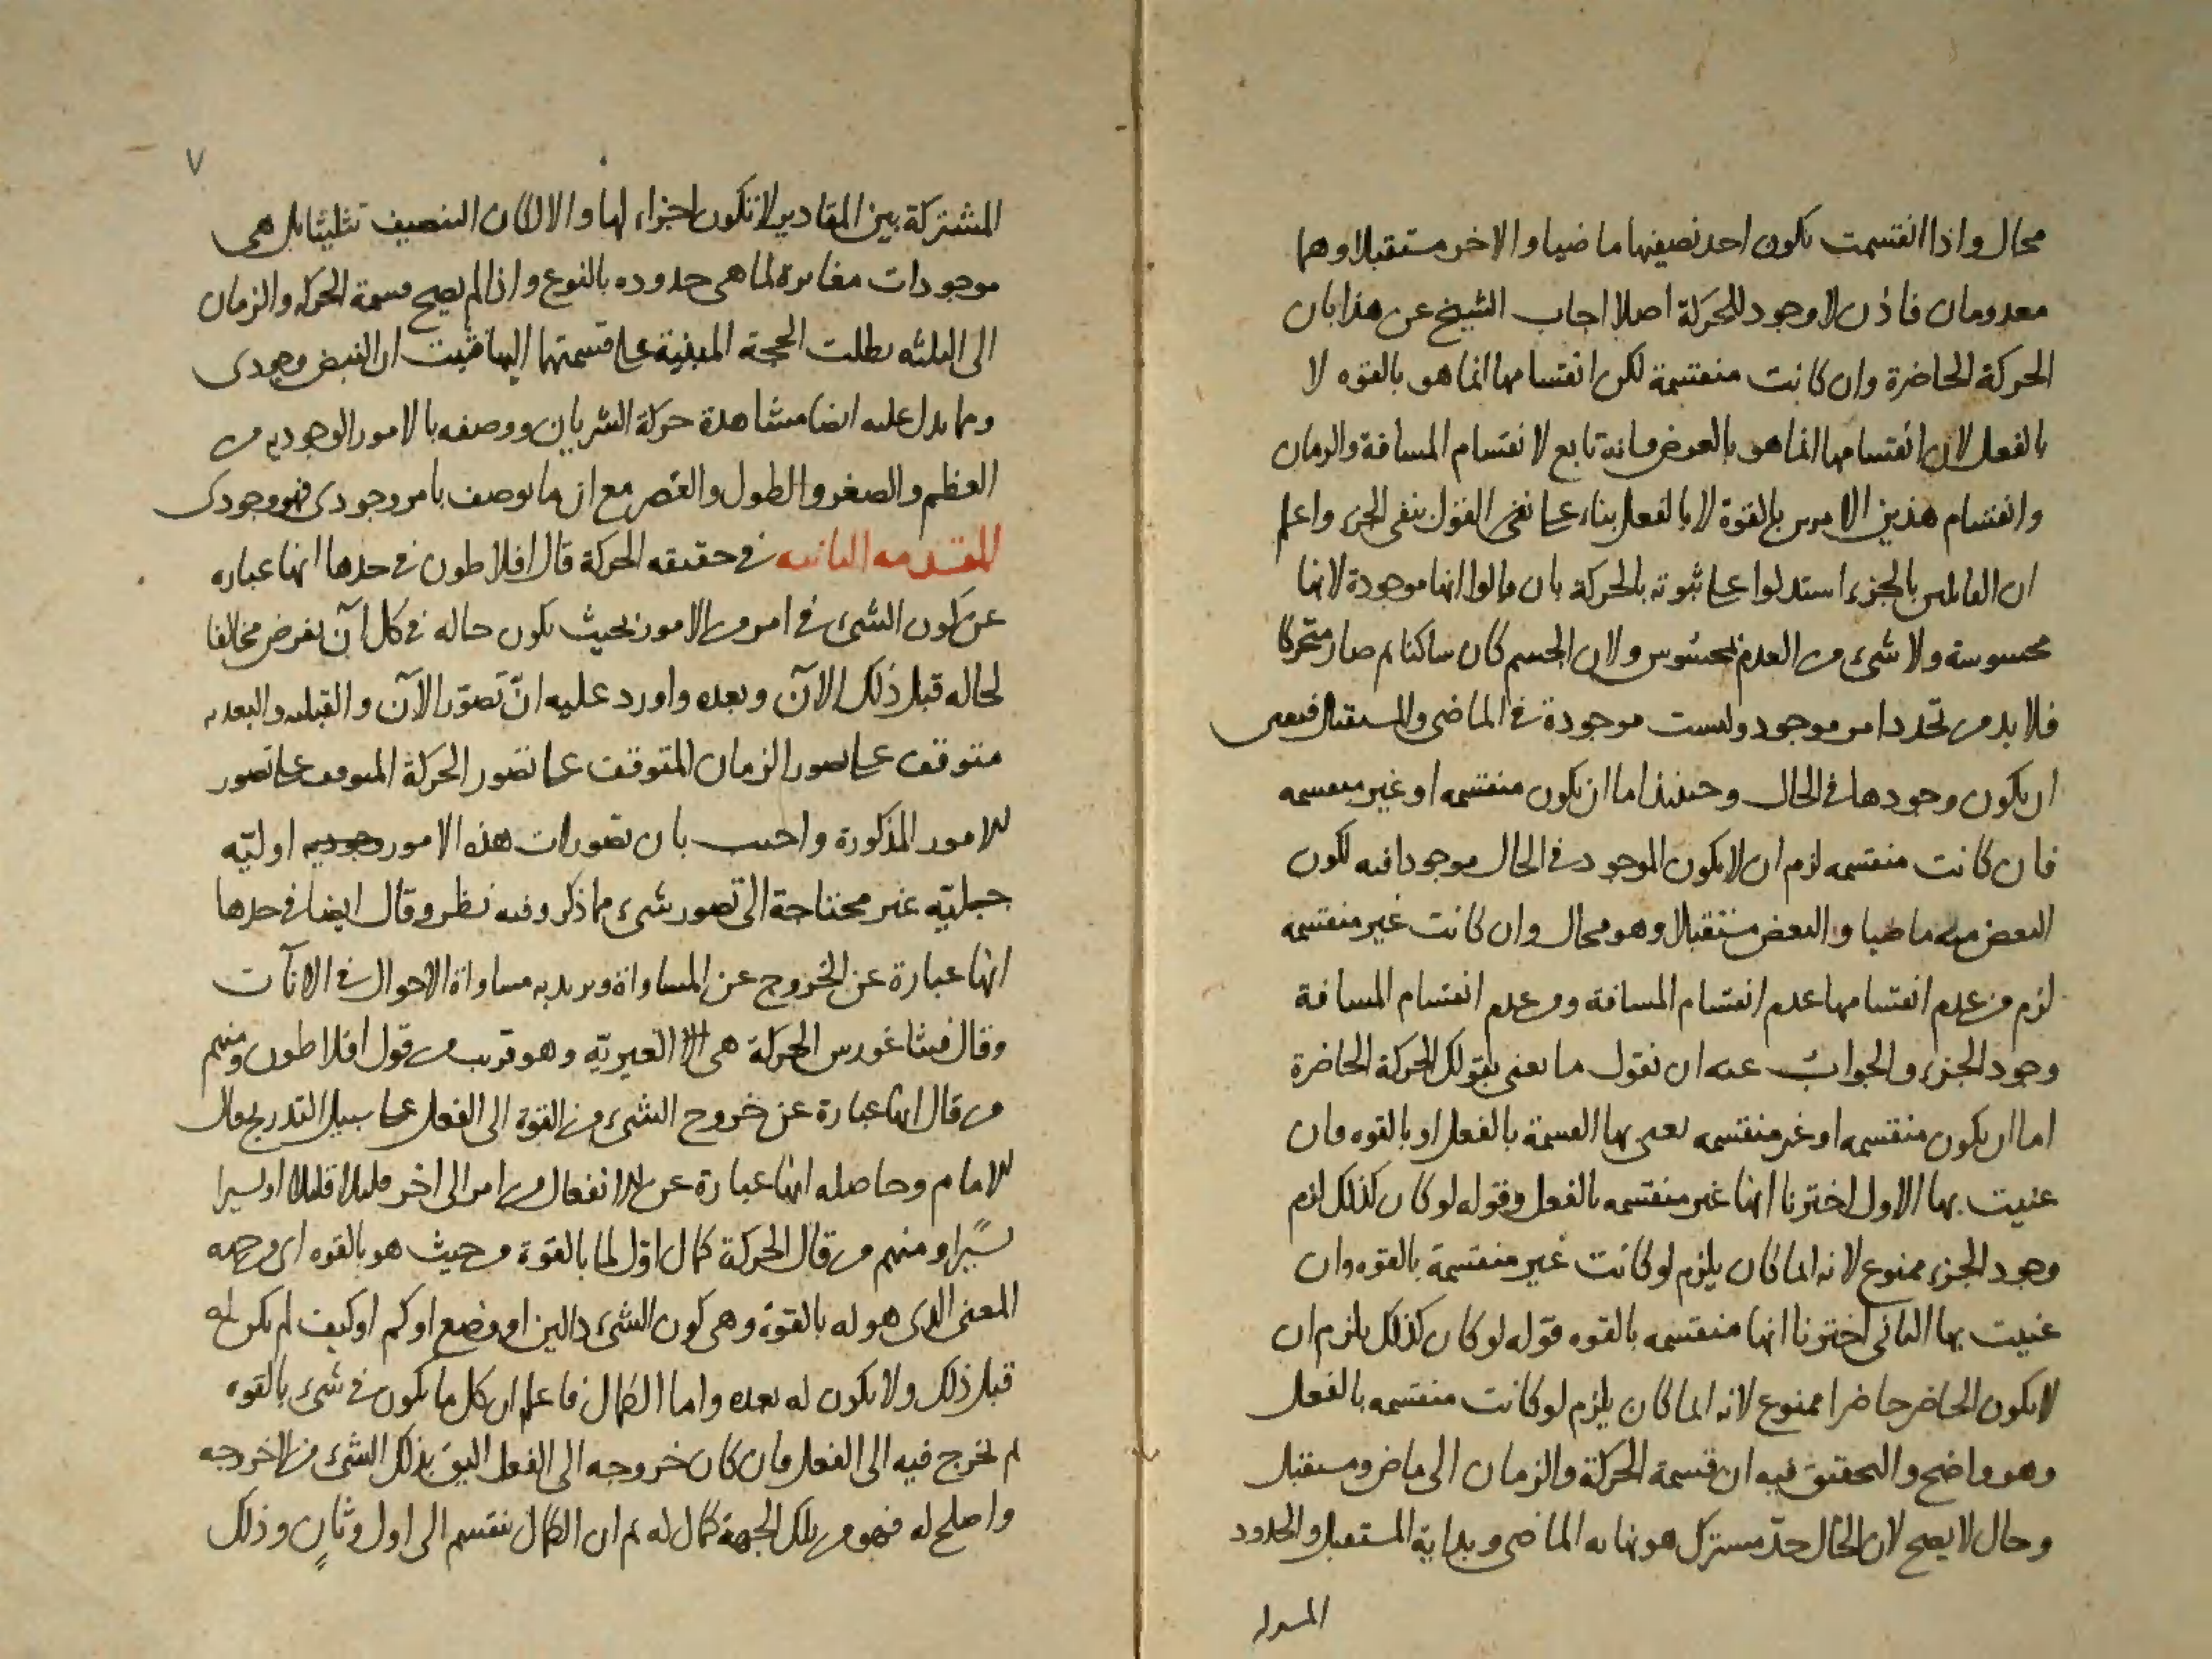 محال واذا انقسمت يكون احد نصيفها ماضيا والاخر مستقبلا وهما
معدومان فاذن لا وجود للحركة اصلا اجاب الشيخ عن هذا بان
الحركة الحاضرة وان كانت منقسمة لكن انقسامها انما هو بالقوه لا
بالفعل لان انقسامها انما هو بالعرض فانه تابع لانقسام المسافة والزمان
وانقسام هذين الامرين بالقوة لا بالفعل بناء على نفى القول بنفى الجزء واعلم
ان القائلين بالجزء استدلوا على ثبوته بالحركة بان قالوا انها موجودة لانها
محسوسة ولا شىء من العدم بمحسوس ولان الجسم كان ساكنا ثم صار متحركا
فلا بد من تجدد امر موجود وليست موجودة فى الماضى والمستقبل فتعين
ان يكون وجودها فى الحال وحينئذ اما ان يكون منقسمه او غير منقسمه
فان كانت منقسمه لزم ان لا يكون الموجود فى الحال موجودا فيه لكون
البعض منه ماضيا والبعض مستقبلا وهو محال وان كانت غير منقسمه
لزم من عدم انقسامها عدم انقسام المسافة ومن عدم انقسام المسافة
وجود الجزء والجواب عنه ان نقول ما نعنى بقولك الحركة الحاضرة
اما ان يكون منقسمه او غير منقسمه نعنى بها القسمة بالفعل او بالقوه فان
عنيت بها الاول اخترنا انها غير منقسمه بالفعل وقوله لو كان كذلك لزم
وجود الجزء ممنوع لانه انما كان يلزم لو كانت غير منقسمة بالقوه وان
عنيت بها الثانى اخترنا انها منقسمه بالقوه قوله لو كان كذلك يلزم ان
لا يكون الحاضر حاضرا ممنوع لانه انما كان يلزم لو كانت منقسمه بالفعل
وهو واضح والتحقيق فيه ان قسمة الحركة والزمان الى ماض ومستقبل
وحال لا يصح لان الحال حدّ مشترك هو نهايه الماضى وبداية المستقبل والحدود
٧
المشتركة بين المقادير لا تكون اجزاء لها والا لكان التنصيف تثليثا بل هى
موجودات مغايرة لما هى حدوده بالنوع واذا لم يصح قسمة الحركه والزمان
الى الثلثه بطلت الحجة المبنية على قسمتهما اليها فثبت ان النبض وجودى
ومما يدل عليه ايضا مشاهدة حركة الشريان ووصفه بالامور الوجوديه من
العظم والصغر والطول والقصر مع ان ما يوصف بامر وجودى فهو وجودى
المقدمه الثانيه فى حقيقه الحركة قال افلاطون فى حدها انها عباره
عن كون الشىء فى امر من الامور بحيث يكون حاله فى كل آن يفرض مخالفا
لحاله قبل ذلك الآن وبعده واورد عليه انّ تصوّر الآن والقبليه والبعديه
متوقف على تصور الزمان المتوقف على تصور الحركة المتوقف على تصور
الامور المذكورة واجيب بان تصورات هذه الامور اوليّه
جبليّه غير محتاجة الى تصور شىء مما ذكر وفيه نظر وقال ايضا فى حدها
انها عبارة عن الخروج عن المساواة ويريد به مساواة الاحوال فى الآنات
وقال فيثاغورس الحركة هى الغيريّه وهو قريب من قول افلاطون ومنهم
من قال انها عبارة عن خروج الشىء من القوة الى الفعل على سبيل التدريج قال
الامام وحاصله انها عبارة عن الانفعال من امر الى اخر قليلا قليلا او يسيرا
يسيرا ومنهم من قال الحركة كمال اوّل لما بالقوة من حيث هو بالقوه اى من جهه
المعنى الذى هو له بالقوة وهى كون الشىء ذا اين او وضع او كم او كيف لم يكن له
قبل ذلك ولا يكون له بعده واما الكمال فاعلم ان كل ما يكون فى شىء بالقوه
ثم يخرج فيه الى الفعل فان كان خروجه الى الفعل اليق بذلك الشىء من لا خروجه
واصلح له فهو من تلك الجهة كمال له ثم ان الكمال ينقسم الى اول وثانٍ وذلك